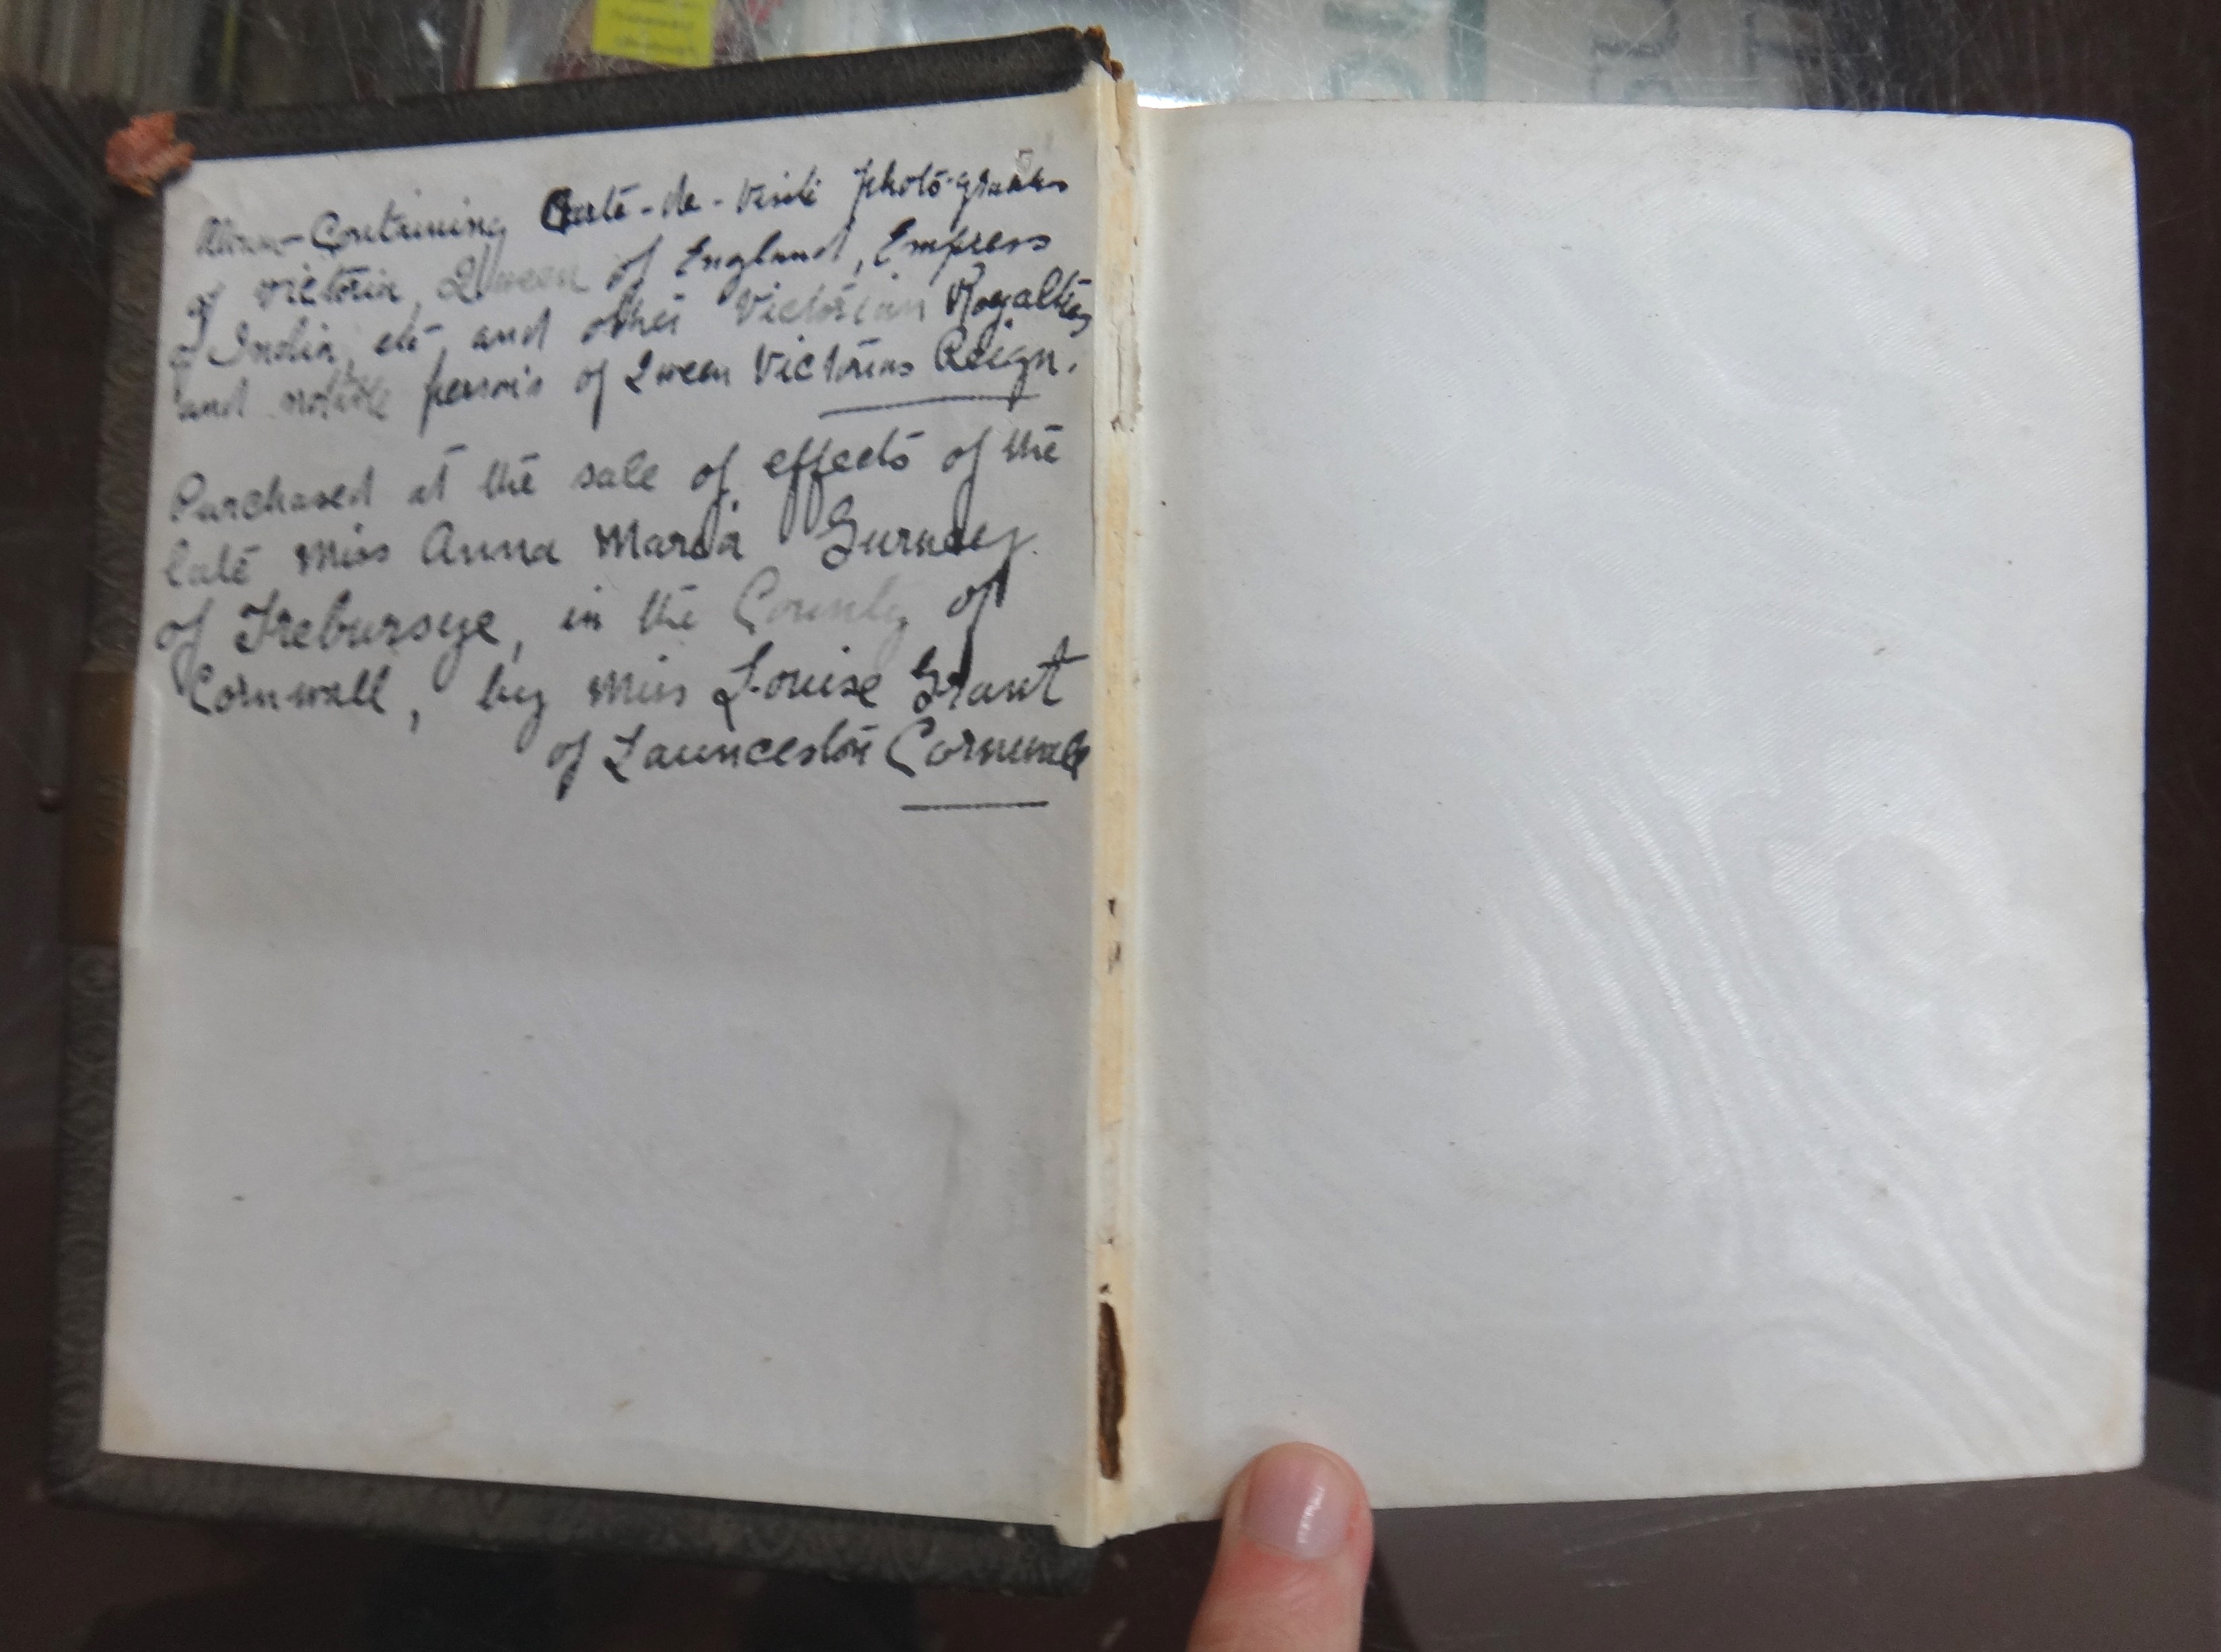 Album-Containing Carte-de-Visite photo-graphs
of Victoria, Queen of England, Empress
of India, etc and other Victorian Royalties
and notable person's of Queen Victorias Reign.
Purchased at the sale of effects of the
late Miss Anna Maria Gurney
of Trebursye, in the County of
Cornwall, by Miss Louise Grant
of Launceston Cornwall